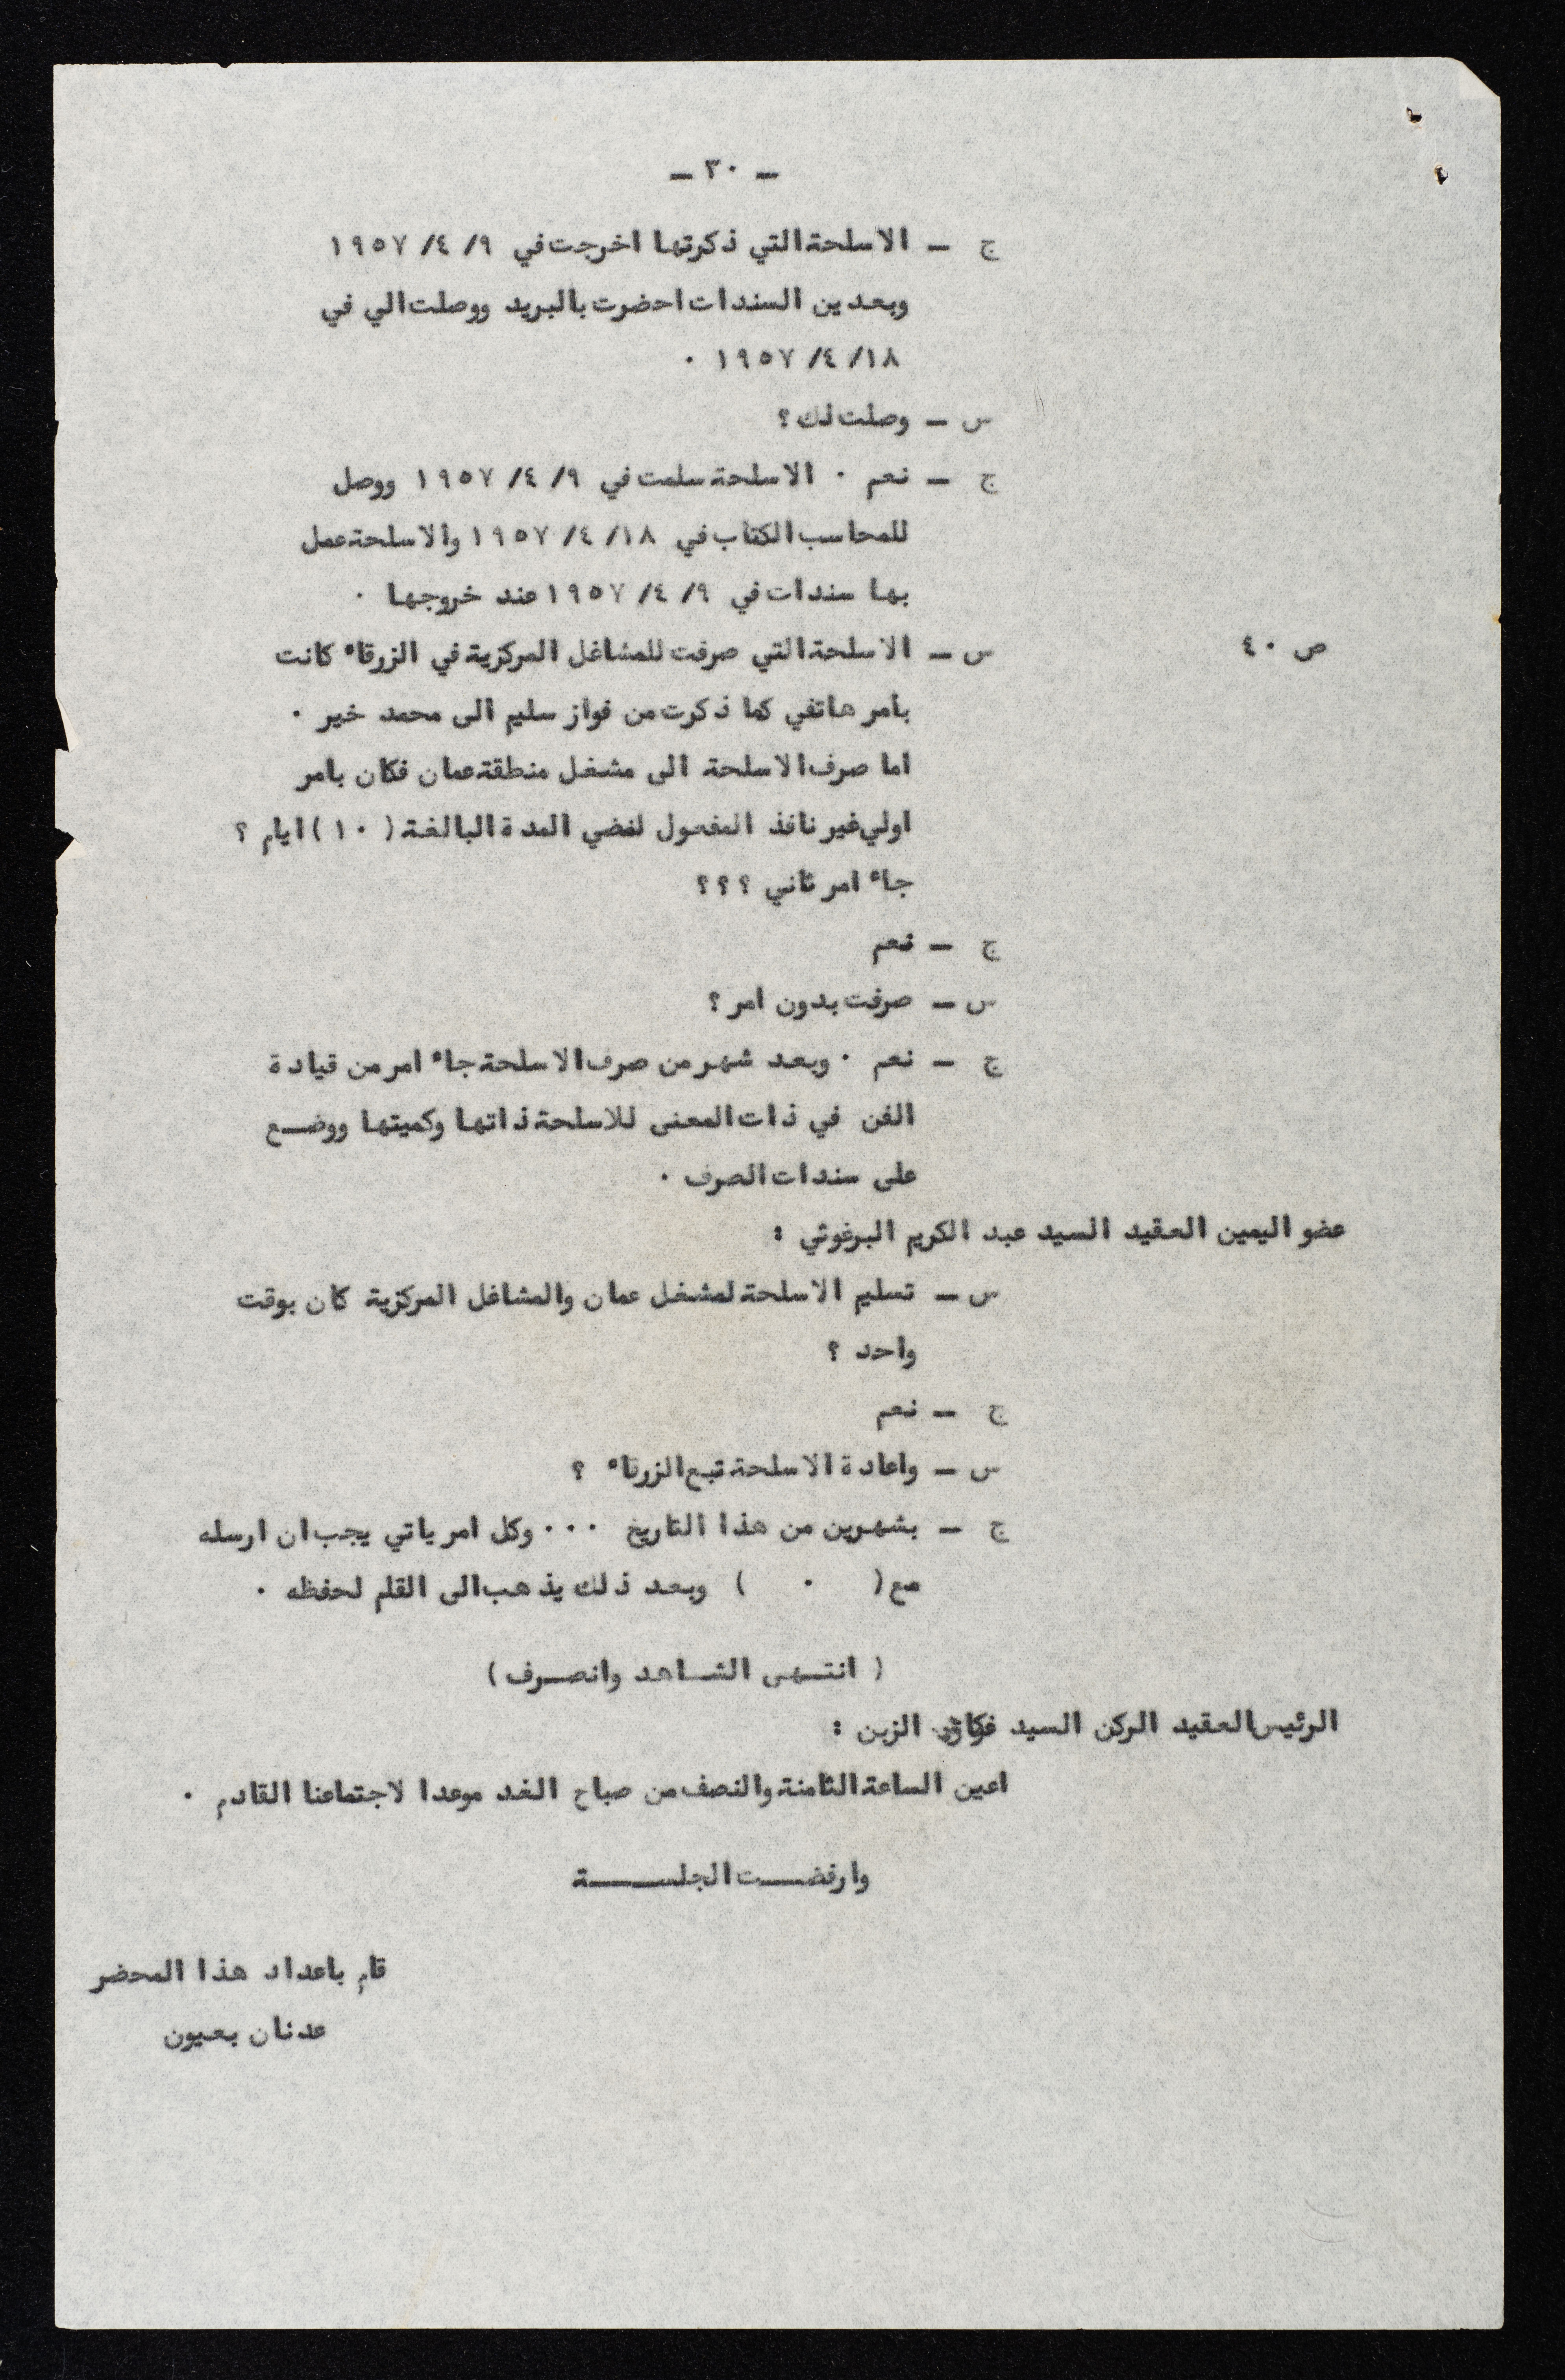 – ٣٠ –
ج – الاسلحة التي ذكرتها اخرجت في ٩/ ٤/ ١٩٥٧
وبعدين السندات احضرت بالبريد ووصلت الي في
١٨/ ٤/ ١٩٥٧ ٠
س – وصلت لك ؟
ج – نعم ٠ الاسلحة سلمت في ٩/ ٤/ ١٩٥٧ ووصل
للمحاسب الكتاب في ١٨/ ٤/ ١٩٥٧ والاسلحة عمل
بها سندات في ٩/ ٤/ ١٩٥٧ عند خروجها ٠
ص ٤٠ س – الاسلحة التي صرفت للمشاغل المركزية في الزرقاء كانت
بامر هاتفي كما ذكرت من فواز سليم الى محمد خير ٠
اما صرف الاسلحة الى مشغل منطقة عمان فكان بامر
اولي غير نافذ المفعول لمضي المدة البالغة ( ١٠ ) ايام ؟
جاء امر ثاني ؟ ؟ ؟
ج – نعم
س – صرفت بدون امر ؟
ج – نعم ٠ وبعد شهر من صرف الاسلحة جاء امر من قيادة
الفن في ذات المعنى للاسلحة ذاتها وكميتها ووضع
على سندات الصرف ٠
عضو اليمين العقيد السيد عبد الكريم البرغوثي :
س – تسليم الاسلحة لمشغل عمان والمشاغل المركزية كان بوقت
واحد ؟
ج – نعم
س – واعادة الاسلحة تبع الزرقاء ؟
ج – بشهرين من هذا التاريخ ٠٠٠ وكل امر ياتي يجب ان ارسله
مع ( ٠ ) وبعد ذلك يذهب الى القلم لحفظه ٠
( انتهى الشاهد وانصرف )
الرئيس العقيد الركن السيد الزبن :
اعين الساعة الثامنة والنصف من صباح الغد موعدا لاجتماعنا القادم ٠
وارفضت الجلسة
قام باعداد هذا المحضر
عدنان بعيون